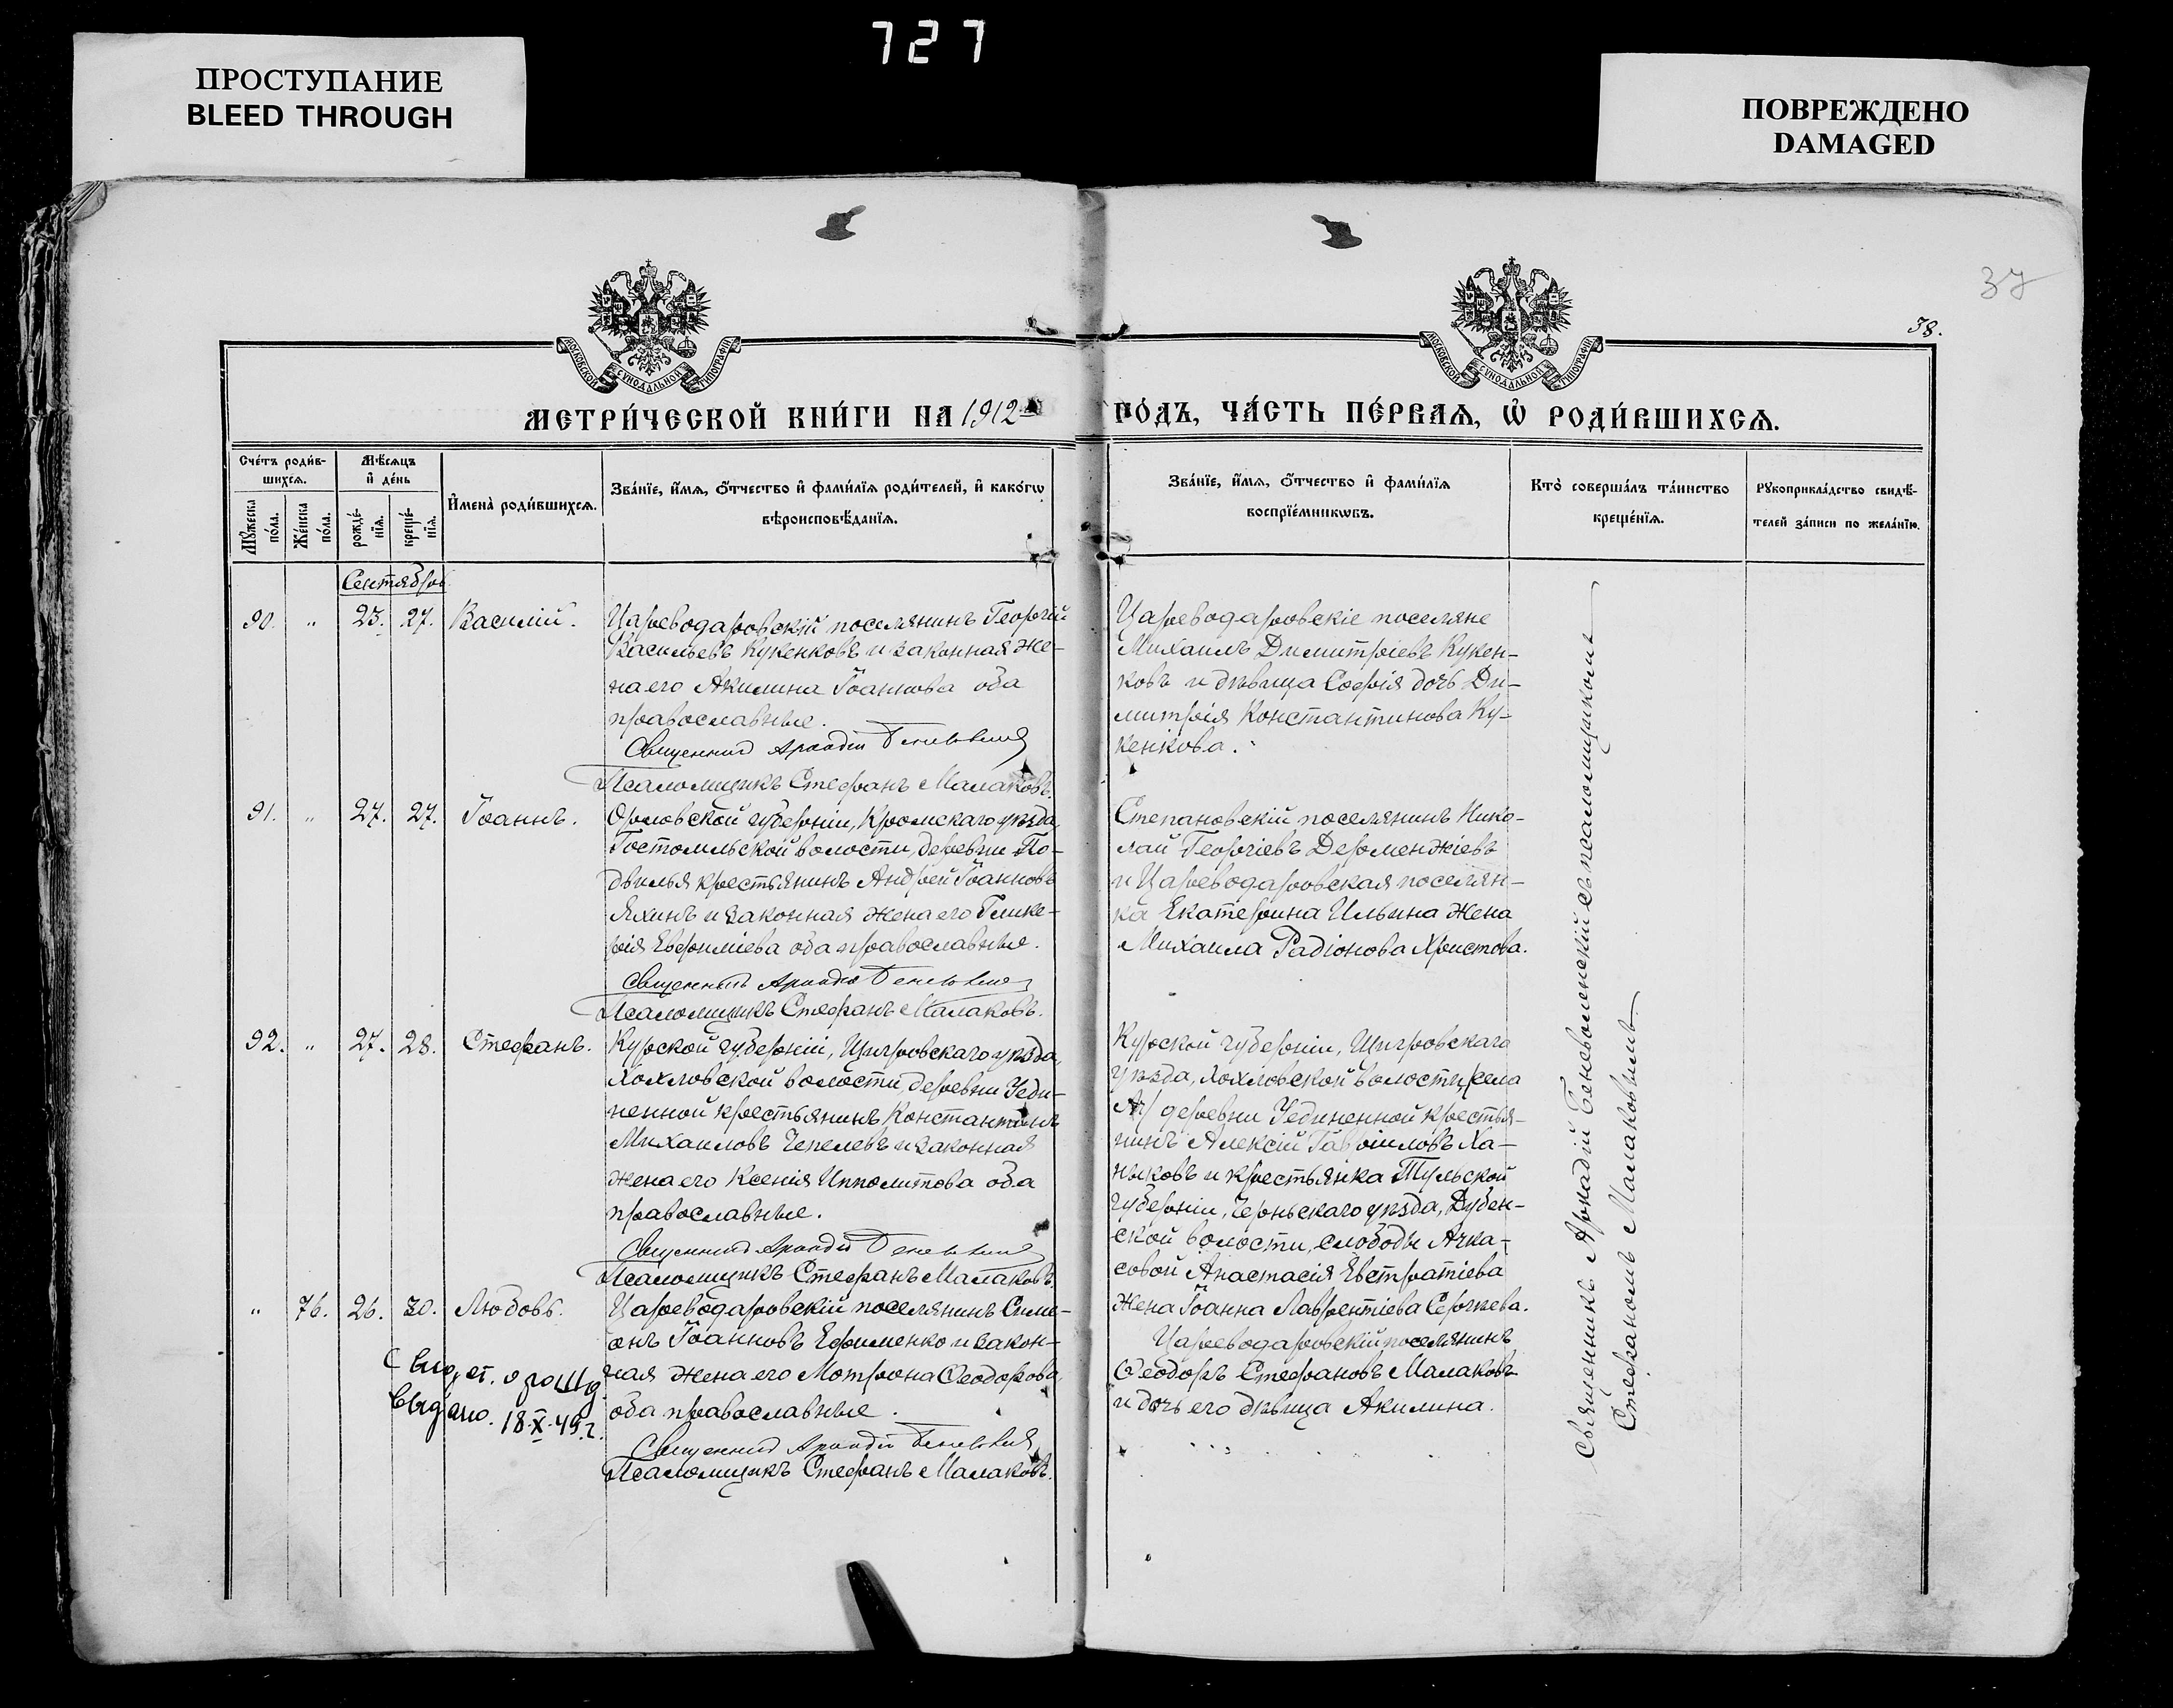 727
ПРОСТУПАНИЕ
BLEED THROUGH
ПОВРЕЖДЕНО
DAMAGED
37
38.
МОСКОВСКОЙ СѴНОДАЛЬНОЙ ТИПОГРАФІИ
МОСКОВСКОЙ СѴНОДАЛЬНОЙ ТИПОГРАФІИ
МЕТРИ́ЧЕСКОЙ КНИ́ГИ НА 1912
ГО́ДЪ, ЧА́СТЬ ПЕ́РВАЯ, Ѡ РОДИ́ВШИХСЯ.
Сче́тъ роди́в-
шихся.
Мѣ́сяцъ
и де́нь
Мꙋ́жеска
по́ла.
Же́нска
по́ла.
рожде́-
нїя.
креще́-
нїя.
Имена̀ роди́вшихся.
Зва́нїе, и́мя, ѻ́тчество и фами́лїя роди́телей, и како́гѡ
вѣроисповѣ́данїя.
Зва́нїе, и́мя, ѻ́тчество и фами́лїя
воспрїе́мникѡвъ.
Кто̀ соверша́лъ та́инство
креще́нїя.
Рꙋкоприкла́дство свидѣ́-
телей за́писи по жела́нїю.
Сентябрь
90. " 23. 27. Василій.
Цареводаровскій поселянинъ Георгій
Васильевъ Кукенковъ и законная же-
на его Акилина Іоаннова оба
православные.
Священник Аркадій
Псаломщикъ Стефанъ Малаковъ.
Цареводаровскіе поселяне
Михаилъ Димитріевъ Кукен-
ковъ и дѣвица Софія дочь Ди-
митрія Константинова Ку-
кенкова.
91. " 27. 27. Іоаннъ.
Орловской губерніи, Кромскаго уѣзда,
Гостомльской волости, деревни По-
двилья крестьянинъ Андрей Іоанновъ
Яхинъ и законная жена его Глике-
рія Евфиміева оба православные.
Священникъ Аркадій
Псаломщикъ Стефанъ Малаковъ.
Степановскій поселянинъ Нико-
лай Георгіевъ Дерменжіевъ
и Цареводаровская поселян-
ка Екатерина Ильина жена
Михаила Радіонова Христова.
92. " 27. 28. Стефанъ.
Курской губерніи, Щигровскаго уѣзда,
Хохловской волости, деревни Уеди-
ненной крестьянинъ Константинъ
Михаиловъ Чепелевъ и законная
жена его Ксенія Ипполитова оба
православные.
Священник Аркадій
Псаломщикъ Стефанъ Малаковъ.
Курской губерніи, Щигровскаго
уѣзда, Хохловской волости, села
деревни Уединенной крестья-
нинъ Алексій Гавріиловъ Ха-
ныковъ и крестьянка Тульской
губерніи, Черньскаго уѣзда, Дубен-
ской волости, слободы Ачка-
совой Анастасія Евстратіева
жена Іоанна Лаврентіева Сергеева.
" 76. 26. 30. Любовь.
Цареводаровскій поселянинъ Симе-
онъ Іоанновъ Ефименко и закон-
ная жена его Мотрона Ѳеодорова,
оба православные.
Священник Аркадій
Псаломщикъ Стефанъ Малаковъ.
выдано. 18.X.49 г.
Цареводаровскій поселянинъ
Ѳеодоръ Стефановъ Малаковъ
и дочь его дѣвица Акилина.
Священникъ Аркадій Беневоленскій съ псаломщикомъ
Стефаномъ Малаковымъ